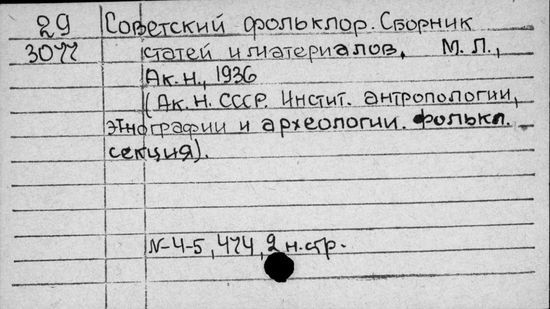 29 Советский фольклор. Сборник
3077 статей и материалов. М. Л.,
Ак. Н., 1936
(Ак. Н. СССР. Инстит. антропологии,
этнографии и археологии. Фолькл.
секция).
№4-5, 474, 2 н.стр.